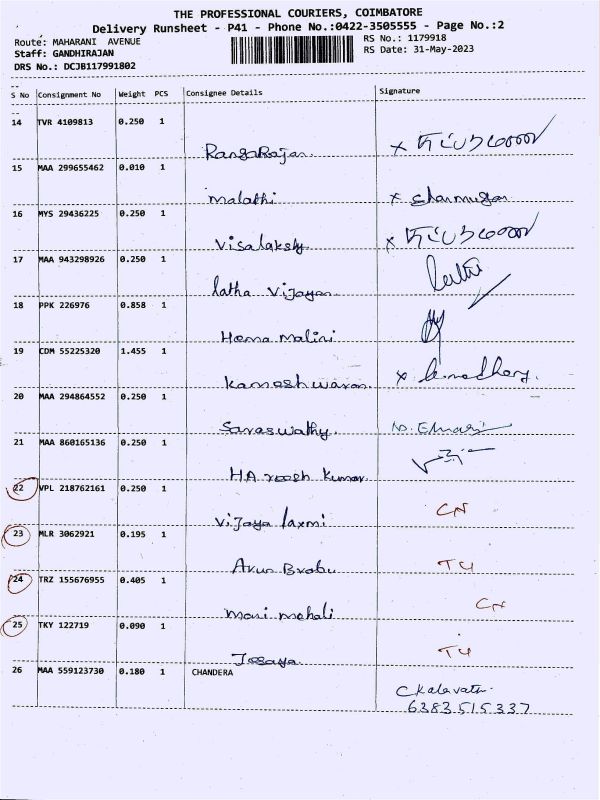 THE PROFESSIONAL COURIERS, COIMBATORE
Delivery Runsheet - P41 - Phone No.:0422-3505555 - Page No.:2
Route: MAHARANI AVENUE RS No.: 1179918
Staff: GANDHIRAJAN RS Date: 31-May-2023
DRS No.: DCJB117991802
S No Consignment No Weight PCS Consignee Details Signature
14 TVR 4109813 0.250 1
RangaRajan x
15 MAA 299655462 0.010 1
malathi x Shanmugan
16 MYS 29436225 0.250 1
Visalakshy x
17 MAA 943298926 0.250 1
latha Vijayan
18 PPK 226976 0.858 1
Hema malini
19 CDM 55225320 1.455 1
Kameshwaran x
20 MAA 294864552 0.250 1
Saraswathy
21 MAA 860165136 0.250 1
HAreesh Kumar
22 VPL 218762161 0.250 1
Vijaya laxmi CN
23 MLR 3062921 0.195 1
Arun TU
24 TRZ 155676955 0.405 1
mani CN
25 TKY 122719 0.090 1
TU
26 MAA 559123730 0.180 1 CHANDERA
6383515337